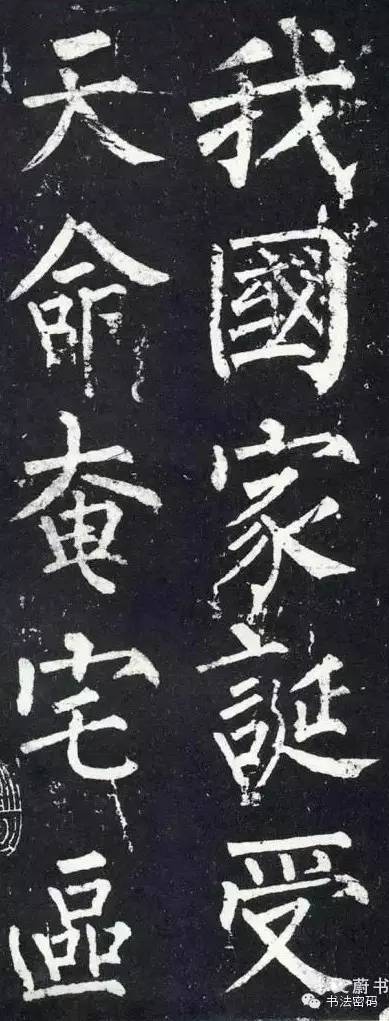 我國家誕受
天命奄宅區
蔚书
书法密码